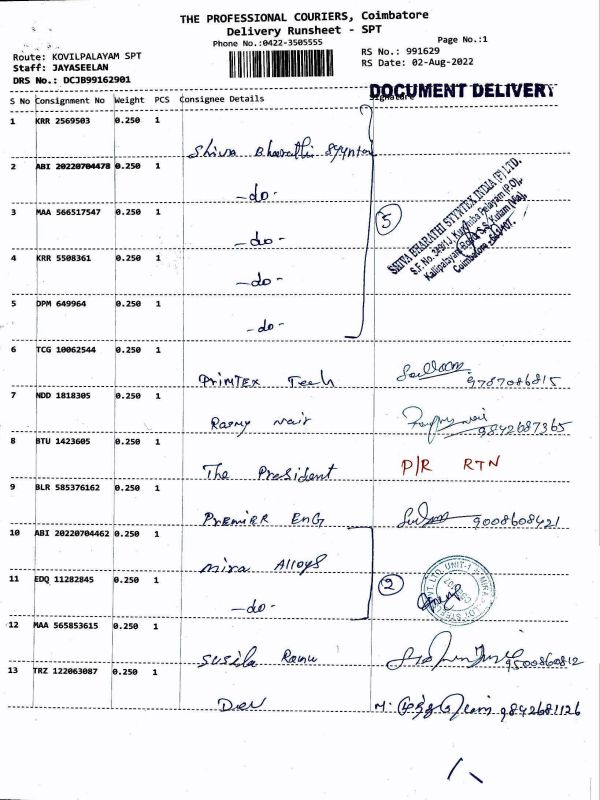 THE PROFESSIONAL COURIERS, Coimbatore
Delivery Runsheet - SPT
Phone No.:0422-3505555
Page No.:1
Route: KOVILPALAYAM SPT
Staff: JAYASEELAN
DRS No.: DCJB99162901
RS No.: 991629
RS Date: 02-Aug-2022
DOCUMENT DELIVERY
S No Consignment No Weight PCS Consignee Details Signature
1 KRR 2569503 0.250 1
Shiva Bharathi
2 ABI 20220704478 0.250 1
-do-
3 MAA 566517547 0.250 1
-do-
4 KRR 5508361 0.250 1
-do-
5 DPM 649964 0.250 1
-do-
5
SHIVA BHARATHI SYNTEX INDIA (P) LTD.
S.F. No. 349/1J, Kurumba Palayam (P.O),
Kalipalayam Road, S.S. Kulam (Via),
Coimbatore - 641 107.
6 TCG 10062544 0.250 1
PRIMTEX Tech 9787086815
7 NDD 1818305 0.250 1
Rasmy Nair 9842687365
8 BTU 1423605 0.250 1
The President P/R RTN
9 BLR 585376162 0.250 1
PREMIER ENG 9008608421
10 ABI 20220704462 0.250 1
Mira Alloys
11 EDQ 11282845 0.250 1
-do-
2
12 MAA 565853615 0.250 1
Susila Ramu 9500860812
13 TRZ 122063087 0.250 1
Dev M. 9842681126